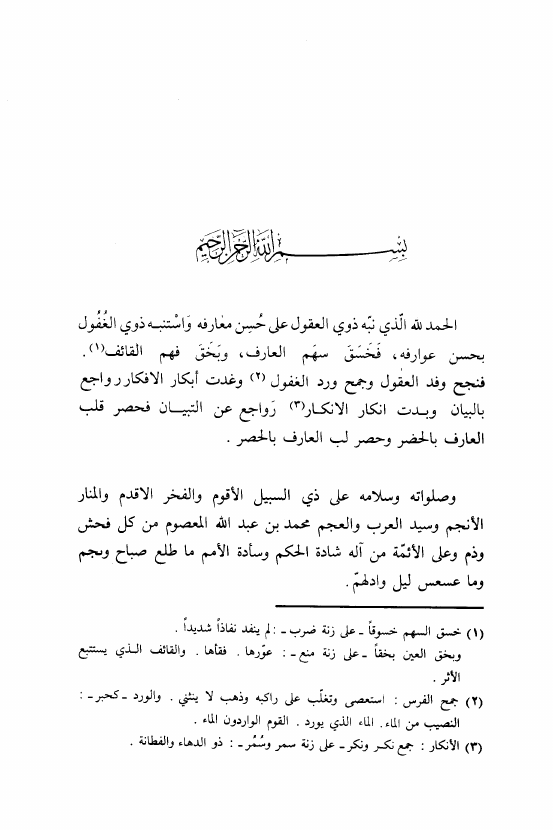 بسم الله الرحمن الرحيم
الحمد لله الّذي نبّه ذوي العقول على حُسن معارفه وَاسْتنبه ذوي الغُفُول
بحسن عوارفه، فَخَسَقَ سهَم العارف، وبَخَقَ فهم القائف(١).
فنجح وفد العقول وجمح ورد الغفول (٢) وغدت أبكار الافكار رواجع
بالبيان وبدت انكار الانكار(٣) رَواجع عن التبيان فحصر قلب
العارف بالحضر وحصر لب العارف بالحصر .
وصلواته وسلامه على ذي السبيل الأقوم والفخر الاقدم والمنار
الأنجم وسيد العرب والعجم محمد بن عبد الله المعصوم من كل فحش
وذم وعلى الأئمّة من آله شادة الحكم وسأدة الأمم ما طلع صباح ونجم
وما عسعس ليل وادلهمّ.
(١) خسق السهم خسوقاً ـ على زنة ضرب ـ :لم ينفد نفاذاً شديداً .
وبخق العين بخقاً ـ على زنة منع ـ : عوّرها . فقأها . والقائف الذي يستتبع
الأثر .
(٢) جمح الفرس : استعصى وتغلّب على راكبه وذهب لا ينثني . والورد ـ كحبر ـ :
النصيب من الماء. الماء الذي يورد . القوم الواردون الماء .
(٣) الأنكار : جمع نكر ونكر ـ على زنة سمر وسُمُر ـ : ذو الدهاء والفطانة .